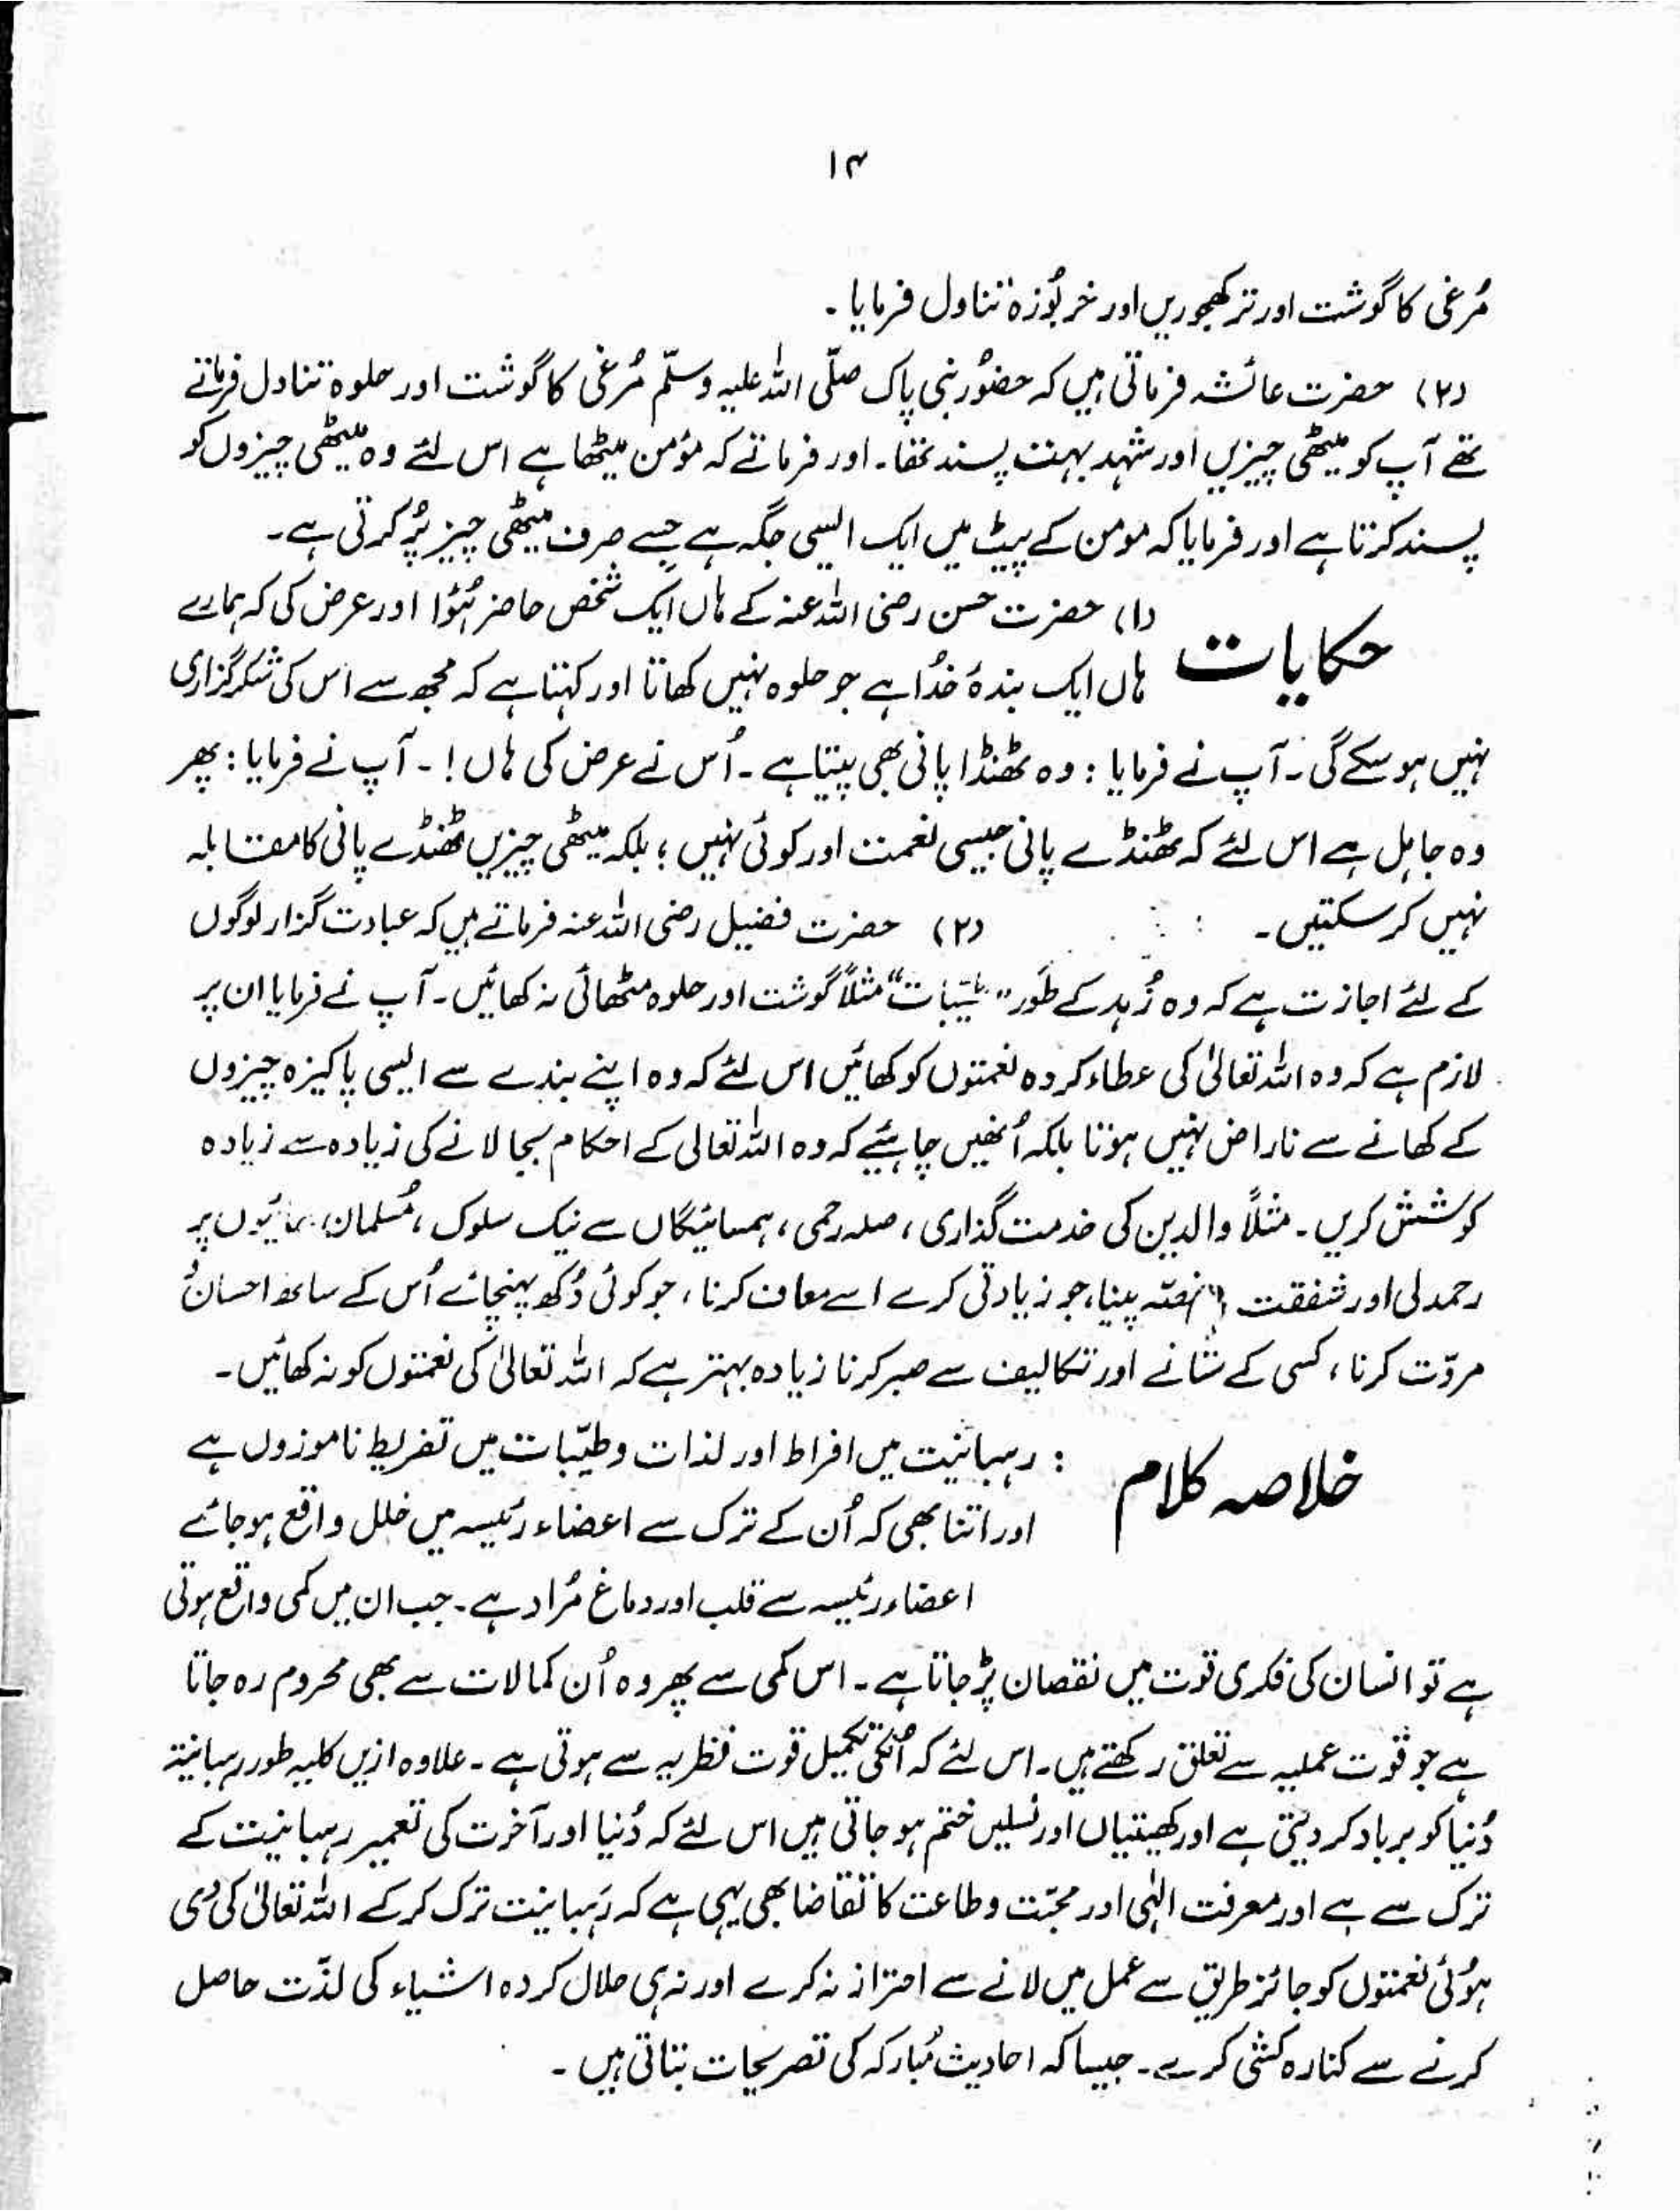 ۱۴
مُرغی کا گوشت اور تر کھجوریں اور خربُوزہ تناول فرمایا ۔
(۲) حضرت عائشہ فرماتی ہیں کہ حضوُر نبی پاک صلّی اللہ علیہ وسلّم مُرغی کا گوشت اور حلوہ تناول فرماتے
تھے آپ کو میٹھی چیزیں اور شہد بہت پسند تھا۔ اور فرماتے کہ مؤمن میٹھا ہے اس لئے وہ میٹھی چیزوں کو
پسند کرتا ہے اور فرمایا کہ مومن کے پیٹ میں ایک ایسی جگہ ہے جِسے صرف میٹھی چیز پُر کرتی ہے۔
حکایات (۱) حضرت حسن رضی اللہ عنہ کے ہاں ایک شخص حاضر ہُؤا اور عرض کی کہ ہمارے
ہاں ایک بندۂ خدُا ہے جو حلوہ نہیں کھاتا اور کہتا ہے کہ مجھ سے اس کی شکر گزاری
نہیں ہو سکے گی ۔ آپ نے فرمایا : وہ ٹھنڈا پانی بھی پیتا ہے ۔ اُس نے عرض کی ہاں ! ۔ آپ نے فرمایا : پھر
وہ جاہل ہے اس لئے کہ ٹھنڈے پانی جیسی نعمت اور کوئی نہیں ؛ بلکہ میٹھی چیزیں ٹھنڈے پانی کا مقابلہ
نہیں کر سکتیں ۔ (۲) حضرت فضیل رضی اللہ عنہ فرماتے ہیں کہ عبادت گزار لوگوں
کے لئے اجازت ہے کہ وہ زُہد کے طَور ”طیّبات“ مثلاً گوشت اور حلوہ مٹھائی نہ کھائیں ۔ آپ نے فرمایا ان پر
لازم ہے کہ وہ اللہ تعالیٰ کی عطاء کردہ نعمتوں کو کھائیں اس لئے کہ وہ اپنے بندے سے ایسی پاکیزہ چیزوں
کے کھانے سے ناراض نہیں ہوتا بلکہ اُنھیں چاہئیے کہ وہ اللہ تعالی کے احکام بجا لانے کی زیادہ سے زیادہ
کوشش کریں ۔ مثلاً والدین کی خدمت گذاری ، صلہ رحمی ، ہمسائیگاں سے نیک سلوک ، مُسلمان بھائیوں پر
رحمدلی اور شفقت غصّہ پینا، جو زیادتی کرے اسے معاف کرنا ، جو کوئی دُکھ پہنچائے اُس کے ساتھ احسان و
مروّت کرنا ، کسی کے ستانے اور تکالیف سے صبر کرنا زیادہ بہتر ہے کہ اللہ تعالیٰ کی نعمتوں کو نہ کھائیں ۔
خلاصہ کلام : رہبانیت میں افراط اور لذات و طیّبات میں تفریط ناموزوں ہے
اور اتنا بھی کہ اُن کے ترک سے اعضاء رئیسہ میں خلل واقع ہو جائے
اعضاء رئیسہ سے قلب اور دماغ مُراد ہے ۔ جب ان میں کمی واقع ہوتی
ہے تو انسان کی فکری قوت میں نقصان پڑ جاتا ہے ۔ اس کمی سے پھر وہ اُن کمالات سے بھی محروم رہ جاتا
ہے جو قوت عملیہ سے تعلق رکھتے ہیں ۔ اس لئے کہ اُنکی تکمیل قوت نظریہ سے ہوتی ہے ۔ علاوہ ازیں کلیہ طور رہبانیۃ
دُنیا کو برباد کر دیتی ہے اور کھیتیاں اور نسلیں ختم ہو جاتی ہیں اس لئے کہ دُنیا اور آخرت کی تعمیر رہبانیت کے
ترک سے ہے اور معرفت الٰہی اور محبّت و طاعت کا تقاضا بھی یہی ہے کہ رَہبانیت ترک کر کے اللہ تعالیٰ کی دی
ہوُئی نعمتوں کو جائز طریق سے عمل میں لانے سے احتراز نہ کرے اور نہ ہی حلال کردہ اشیاء کی لذّت حاصل
کرنے سے کنارہ کشی کرے ۔ جیسا کہ احادیث مُبارکہ کی تصریحات بتاتی ہیں ۔